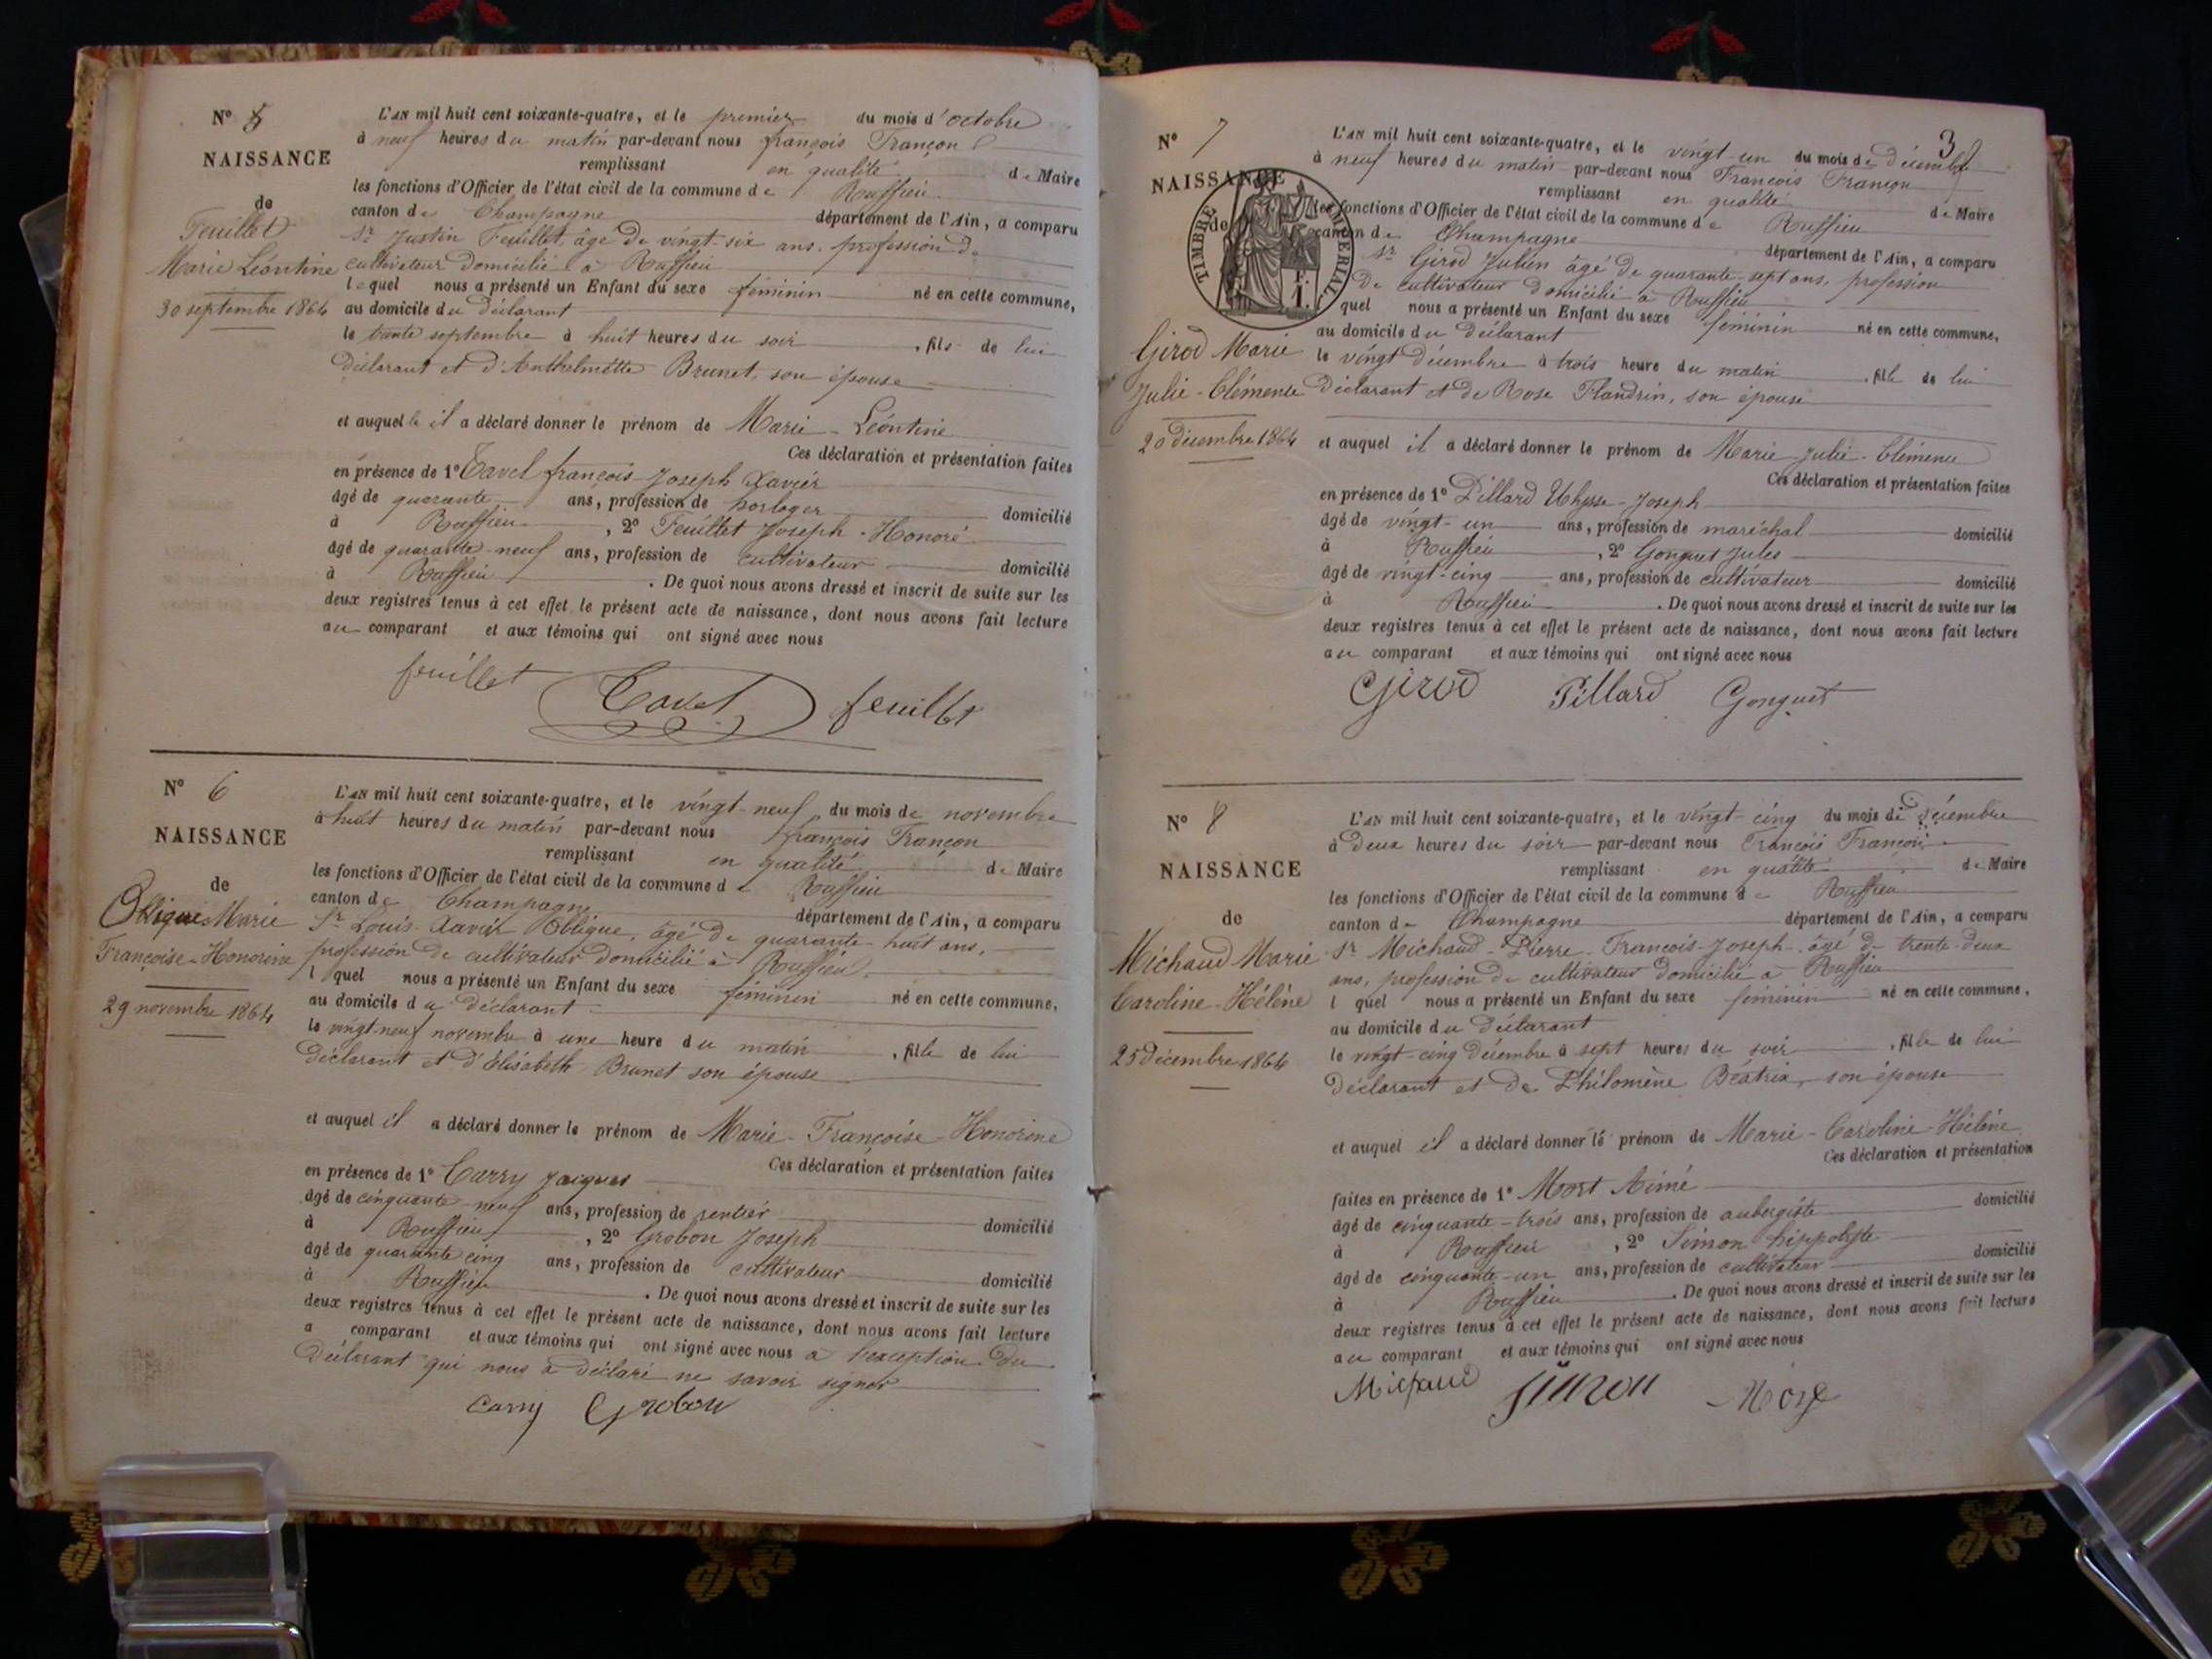 N° 5
NAISSANCE
de
Feuillet
Marie Léontine
30 septembre 1864
L'AN mil huit cent soixante-quatre, et le premier du mois d'octobre
à neuf heures du matin par-devant nous françois Françon
remplissant en qualité de Maire
les fonctions d'Officier de l'état civil de la commune de Ruffieu
canton de Champagne département de l'Ain, a comparu
Sr Justin Feuillet, âgé de vingt-six ans, profession de
cultivateur domicilié à Ruffieu
lequel nous a présenté un Enfant du sexe féminin né en cette commune,
au domicile du déclarant
le trente septembre à huit heures du soir, fils de lui
déclarant et d'Anthelmette Brunet, son épouse
et auquel le il a déclaré donner le prénom de Marie-Léontine
Ces déclaration et présentation faites
en présence de 1° Tavel françois Joseph Xavier
âgé de quarante ans, profession de horloger domicilié
à Ruffieu, 2° Feuillet Joseph-Honoré
âgé de quarante-neuf ans, profession de cultivateur domicilié
à Ruffieu. De quoi nous avons dressé et inscrit de suite sur les
deux registres tenus à cet effet le présent acte de naissance, dont nous avons fait lecture
au comparant et aux témoins qui ont signé avec nous
feuillet Tavel feuillet
N° 6
NAISSANCE
de
Oblique Marie
Françoise-Honorine
29 novembre 1864
L'AN mil huit cent soixante-quatre, et le vingt-neuf du mois de novembre
à huit heures du matin par-devant nous françois Françon
remplissant en qualité de Maire
les fonctions d'Officier de l'état civil de la commune de Ruffieu
canton de Champagne département de l'Ain, a comparu
Sr Louis-Xavier Oblique, âgé de quarante-huit ans,
profession de cultivateur domicilié à Ruffieu,
l quel nous a présenté un Enfant du sexe féminin né en cette commune,
au domicile du déclarant
le vingt-neuf novembre à une heure du matin, fille de lui
déclarant et d'Elisabeth Brunet son épouse
et auquel il a déclaré donner le prénom de Marie-Françoise-Honorine
Ces déclaration et présentation faites
en présence de 1° Carry Jaques
âgé de cinquante-neuf ans, profession de rentier domicilié
à Ruffieu, 2° Grobon Joseph
âgé de quarante cinq ans, profession de cultivateur domicilié
à Ruffieu. De quoi nous avons dressé et inscrit de suite sur les
deux registres tenus à cet effet le présent acte de naissance, dont nous avons fait lecture
a comparant et aux témoins qui ont signé avec nous à l'exception du
déclarant qui nous a déclaré ne savoir signer
Carry Grobon
3
N° 7
NAISSANCE
de
TIMBRE IMPERIAL
1 F.
Girod Marie
Julie-Clémence
20 décembre 1864
L'AN mil huit cent soixante-quatre, et le vingt-un du mois de décembre
à neuf heures du matin par-devant nous François Françon
remplissant en qualité de Maire
les fonctions d'Officier de l'état civil de la commune de Ruffieu
canton de Champagne département de l'Ain, a comparu
Sr Girod Julien âgé de quarante-sept ans, profession
de cultivateur domicilié à Ruffieu
quel nous a présenté un Enfant du sexe féminin né en cette commune,
au domicile du déclarant
le vingt décembre à trois heure du matin, fille de lui
déclarant et de Rose Flandrin, son épouse
et auquel il a déclaré donner le prénom de Marie-Julie-Clémence
Ces déclaration et présentation faites
en présence de 1° Pillard Ulysse-Joseph
âgé de vingt-un ans, profession de maréchal domicilié
à Ruffieu, 2° Gonguet Jules
âgé de vingt-cinq ans, profession de cultivateur domicilié
à Ruffieu. De quoi nous avons dressé et inscrit de suite sur les
deux registres tenus à cet effet le présent acte de naissance, dont nous avons fait lecture
au comparant et aux témoins qui ont signé avec nous
Girod Pillard Gonguet
N° 8
NAISSANCE
de
Michaud Marie
Caroline-Hélène
25 décembre 1864
L'AN mil huit cent soixante-quatre, et le vingt-cinq du mois de décembre
à deux heures du soir par-devant nous François Françon
remplissant en qualité de Maire
les fonctions d'Officier de l'état civil de la commune de Ruffieu
canton de Champagne département de l'Ain, a comparu
Sr Michaud-Pierre-François-Joseph, âgé de trente-deux
ans, profession de cultivateur domicilié à Ruffieu
l quel nous a présenté un Enfant du sexe féminin né en cette commune,
au domicile du déclarant
le vingt-cinq décembre à sept heures du soir, fille de lui
déclarant et de Philomène Béatrix, son épouse
et auquel il a déclaré donner le prénom de Marie-Caroline-Hélène
Ces déclaration et présentation
faites en présence de 1° Mort Aimé
âgé de cinquante-trois ans, profession de aubergiste domicilié
à Ruffieu, 2° Simon hippolyte
âgé de cinquante-un ans, profession de cultivateur domicilié
à Ruffieu. De quoi nous avons dressé et inscrit de suite sur les
deux registres tenus à cet effet le présent acte de naissance, dont nous avons fait lecture
au comparant et aux témoins qui ont signé avec nous
Michaud Simon Mort